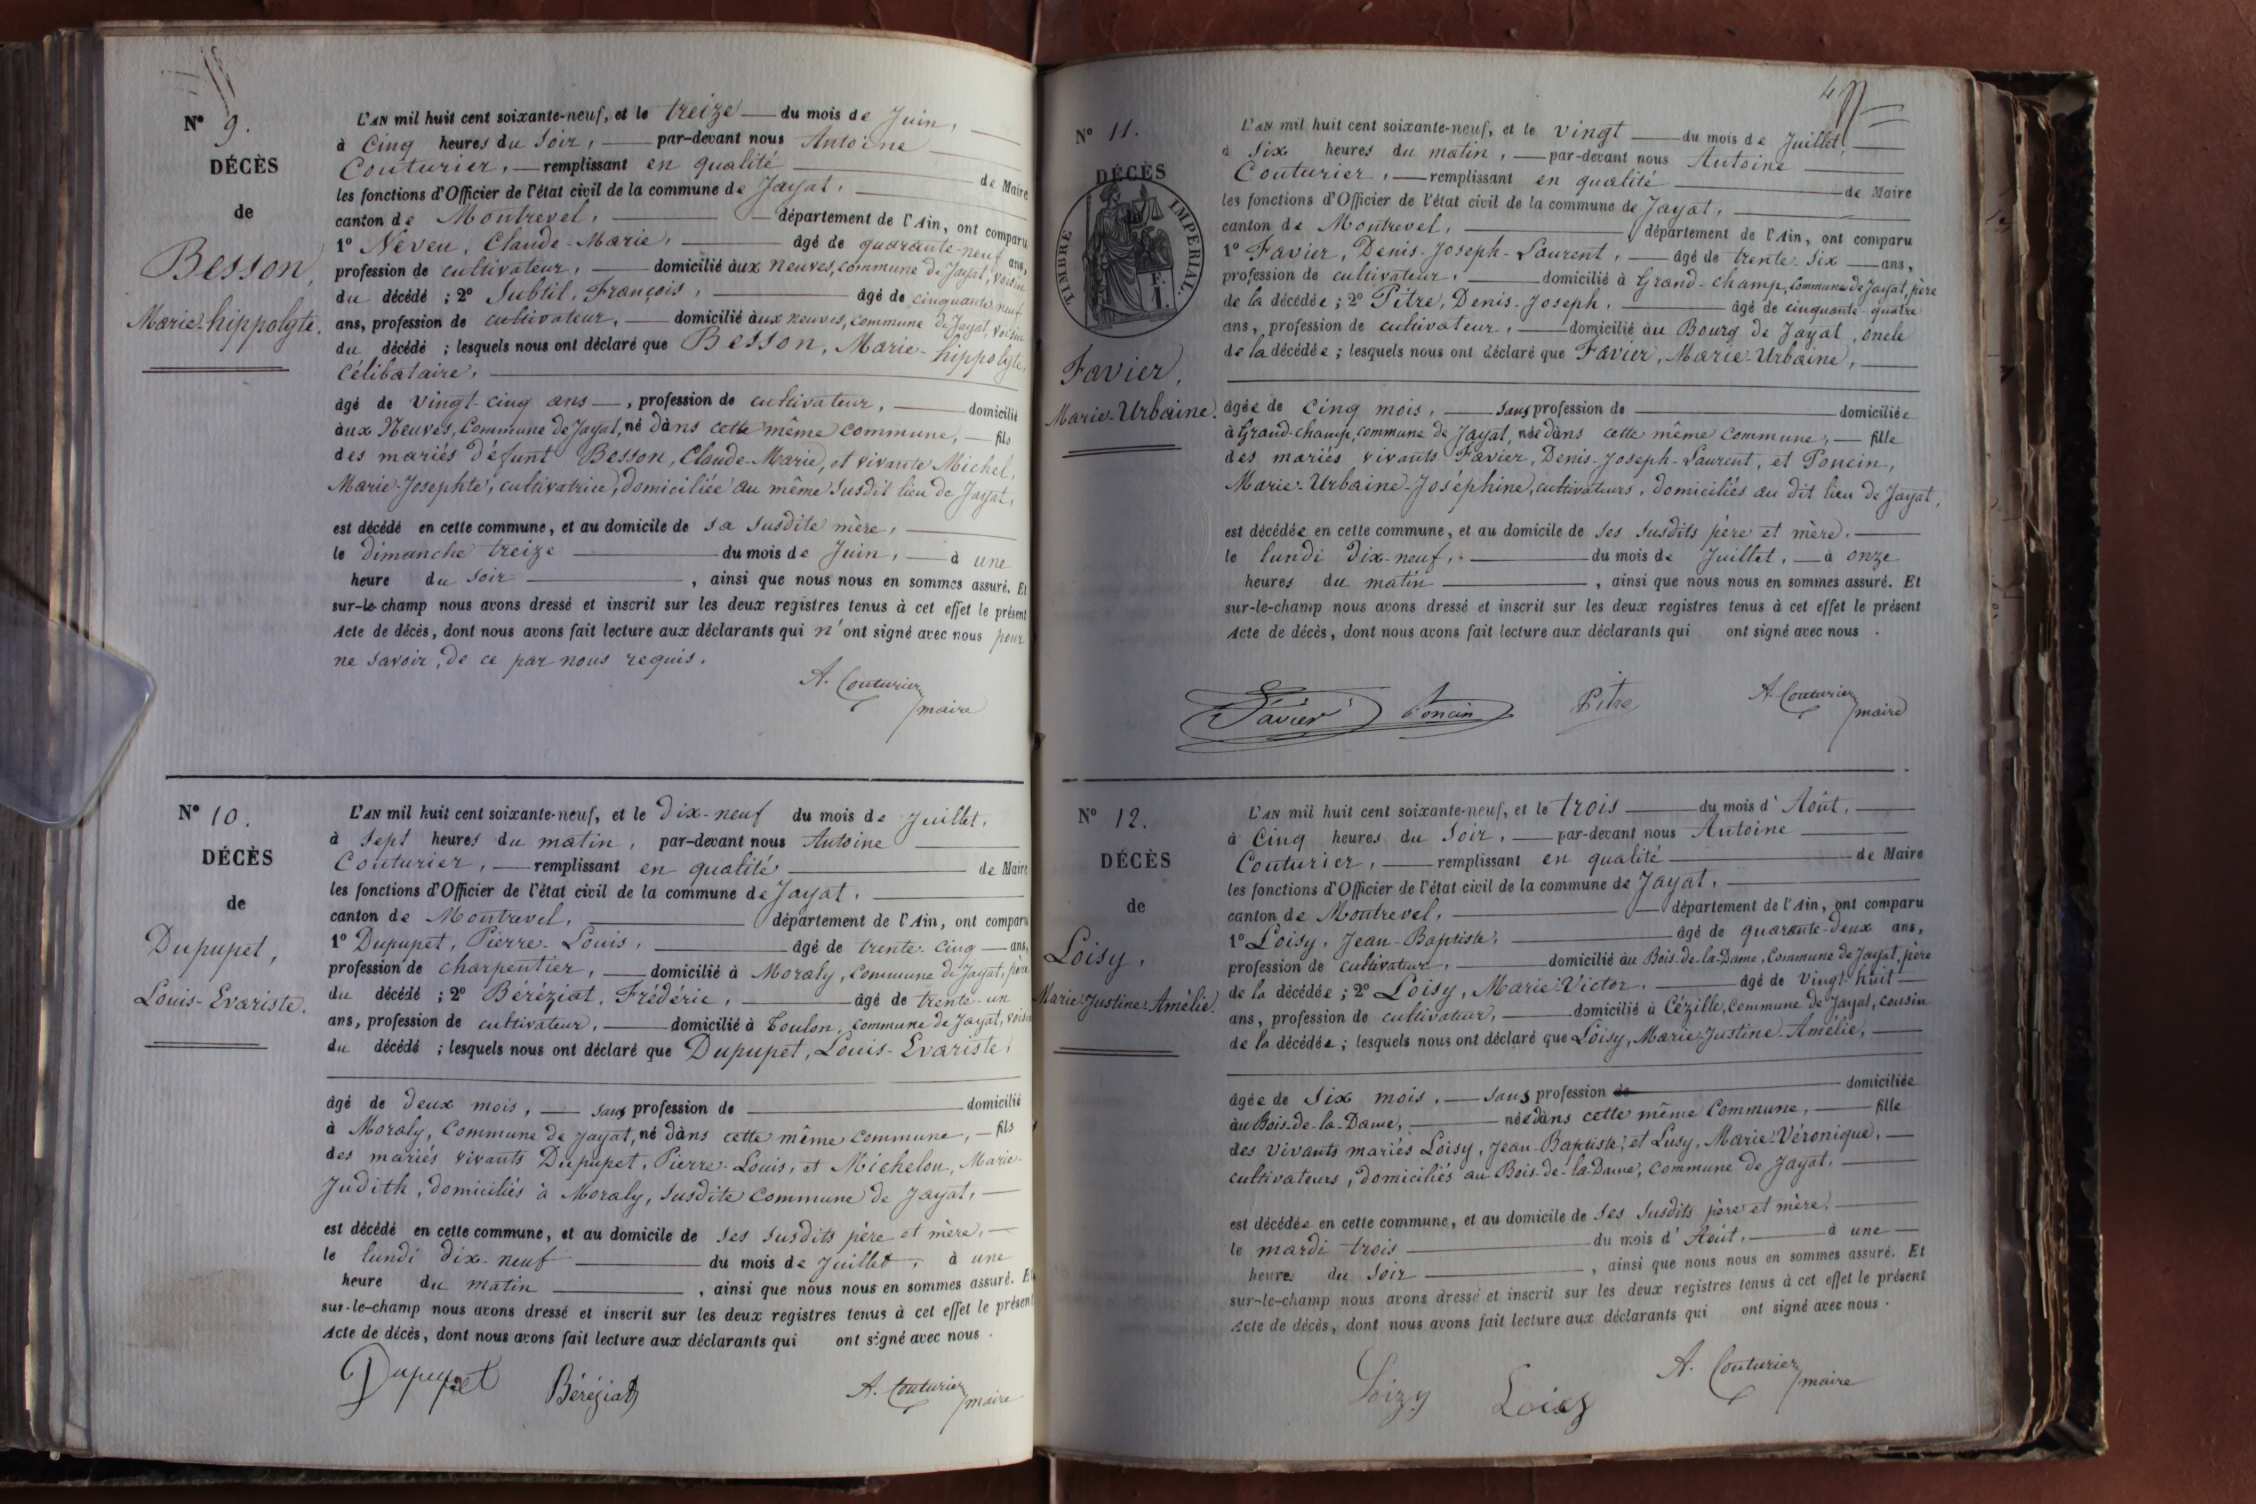 N° 9.
DÉCÈS
de
Besson,
Marie-hippolyte.
L'AN mil huit cent soixante-neuf, et le treize du mois de Juin,
à Cinq heures du Soir, par-devant nous Antoine
Couturier, remplissant en qualité de Maire
les fonctions d'Officier de l'état civil de la commune de Jayat,
canton de Montrevel, département de l'Ain, ont comparu
1° Neveu, Claude-Marie, âgé de quarante-neuf ans,
profession de cultivateur, domicilié aux neuves, commune de Jayat, voisin
du décédé ; 2° Subtil, François, âgé de cinquante-neuf
ans, profession de cultivateur, domicilié aux neuves, commune de Jayat, voisin
du décédé ; lesquels nous ont déclaré que Besson, Marie-hippolyte,
Célibataire,
âgé de vingt-cinq ans, profession de cultivateur, domicilié
aux Neuves, Commune de Jayat, né dans cette même commune, fils
des mariés défunt Besson, Claude-Marie, et vivante Michel,
Marie-Josephte, cultivatrice, domiciliée au même susdit lieu de Jayat,
est décédé en cette commune, et au domicile de sa susdite mère,
le dimanche treize du mois de Juin, à une
heure du soir, ainsi que nous nous en sommes assuré. Et
sur-le-champ nous avons dressé et inscrit sur les deux registres tenus à cet effet le présent
Acte de décès, dont nous avons fait lecture aux déclarants qui n'ont signé avec nous pour
ne savoir, de ce par nous requis.
A. Couturier
maire
N° 10.
DÉCÈS
de
Dupupet,
Louis-Evariste.
L'AN mil huit cent soixante-neuf, et le Dix-neuf du mois de Juillet,
à Sept heures du matin, par-devant nous Antoine
Couturier, remplissant en qualité de Maire
les fonctions d'Officier de l'état civil de la commune de Jayat,
canton de Montrevel, département de l'Ain, ont comparu
1° Dupupet, Pierre-Louis, âgé de trente-cinq ans,
profession de charpentier, domicilié à Moraly, commune de Jayat, père
du décédé ; 2° Béréziat, Frédéric, âgé de trente-un
ans, profession de cultivateur, domicilié à Toulon, commune de Jayat, voisin
du décédé ; lesquels nous ont déclaré que Dupupet, Louis-Evariste,
âgé de deux mois, sans profession de domicilié
à Moraly, Commune de Jayat, né dans cette même commune, fils
des mariés vivants Dupupet, Pierre-Louis, et Michelon, Marie-
Judith, domiciliés à Moraly, susdite commune de Jayat,
est décédé en cette commune, et au domicile de ses susdits père et mère,
le lundi dix-neuf du mois de Juillet, à une
heure du matin, ainsi que nous nous en sommes assuré. Et
sur-le-champ nous avons dressé et inscrit sur les deux registres tenus à cet effet le présent
Acte de décès, dont nous avons fait lecture aux déclarants qui ont signé avec nous.
Dupupet Béréziat A. Couturier
maire
N° 11.
DÉCÈS
TIMBRE IMPÉRIAL.
1 F.
Favier,
Marie-Urbaine.
L'AN mil huit cent soixante-neuf, et le vingt du mois de Juillet,
à six heures du matin, par-devant nous Antoine
Couturier, remplissant en qualité de Maire
les fonctions d'Officier de l'état civil de la commune de Jayat,
canton de Montrevel, département de l'Ain, ont comparu
1° Favier, Denis-Joseph-Laurent, âgé de trente-six ans,
profession de cultivateur, domicilié à Grand-champ, Commune de Jayat, père
de la décédée ; 2° Pitre, Denis-Joseph, âgé de cinquante-quatre
ans, profession de cultivateur, domicilié au Bourg de Jayat, oncle
de la décédée ; lesquels nous ont déclaré que Favier, Marie-Urbaine,
âgée de Cinq mois, sans profession de domiciliée
à Grand-champ, commune de Jayat, née dans cette même commune, fille
des mariés vivants Favier, Denis-Joseph-Laurent, et Poncin,
Marie-Urbaine-Joséphine, cultivateurs, domiciliés au dit lieu de Jayat,
est décédée en cette commune, et au domicile de ses susdits père et mère,
le lundi dix-neuf, du mois de Juillet, à onze
heures du matin, ainsi que nous nous en sommes assuré. Et
sur-le-champ nous avons dressé et inscrit sur les deux registres tenus à cet effet le présent
Acte de décès, dont nous avons fait lecture aux déclarants qui ont signé avec nous.
Favier Poncin Pitre A. Couturier
maire
N° 12.
DÉCÈS
de
Loisy,
Marie-Justine-Amélie.
L'AN mil huit cent soixante-neuf, et le trois du mois d'Août,
à Cinq heures du Soir, par-devant nous Antoine
Couturier, remplissant en qualité de Maire
les fonctions d'Officier de l'état civil de la commune de Jayat,
canton de Montrevel, département de l'Ain, ont comparu
1° Loisy, Jean-Baptiste, âgé de quarante-deux ans,
profession de cultivateur, domicilié au Bois-de-la-Dame, Commune de Jayat, père
de la décédée ; 2° Loisy, Marie-Victor, âgé de vingt-huit
ans, profession de cultivateur, domicilié à Cézille, Commune de Jayat, cousin
de la décédée ; lesquels nous ont déclaré que Loisy, Marie-Justine-Amélie,
âgée de Six mois, sans profession de domiciliée
au Bois-de-la-Dame, née dans cette même Commune, fille
des vivants mariés Loisy, Jean-Baptiste, et Lusy, Marie-Véronique,
cultivateurs, domiciliés au Bois-de-la-Dame, commune de Jayat,
est décédée en cette commune, et au domicile de ses susdits père et mère,
le mardi trois du mois d'Août, à une
heure du soir, ainsi que nous nous en sommes assuré. Et
sur-le-champ nous avons dressé et inscrit sur les deux registres tenus à cet effet le présent
Acte de décès, dont nous avons fait lecture aux déclarants qui ont signé avec nous.
Loizy Loisy A. Couturier
maire